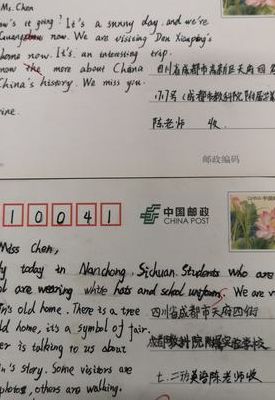 Ms. Chen
w's it going? It's a sunny day, and we're
Guangshou now. We are visiting Den Xiaoping's
home now. It's an interesting trip.
now the more about China
China's history. We miss you.
rine.
四川省成都市高新区天府四
1717号(成都市教科院附属
陈老师 收
邮政编码
10041
中国邮政
CHINA POST
Miss Chen,
y today in Nanchong, Sichuan. Students who are
ol are wearing white hats and school uniforms. We are v
's old home. There is a tree
old home, it's a symbol of fair.
er is talking to us about
n's story. Some visitors are
photos, others are walking.
四川省成都市天府四街
成都教科院附属实验学校
七.二班英语陈老师收